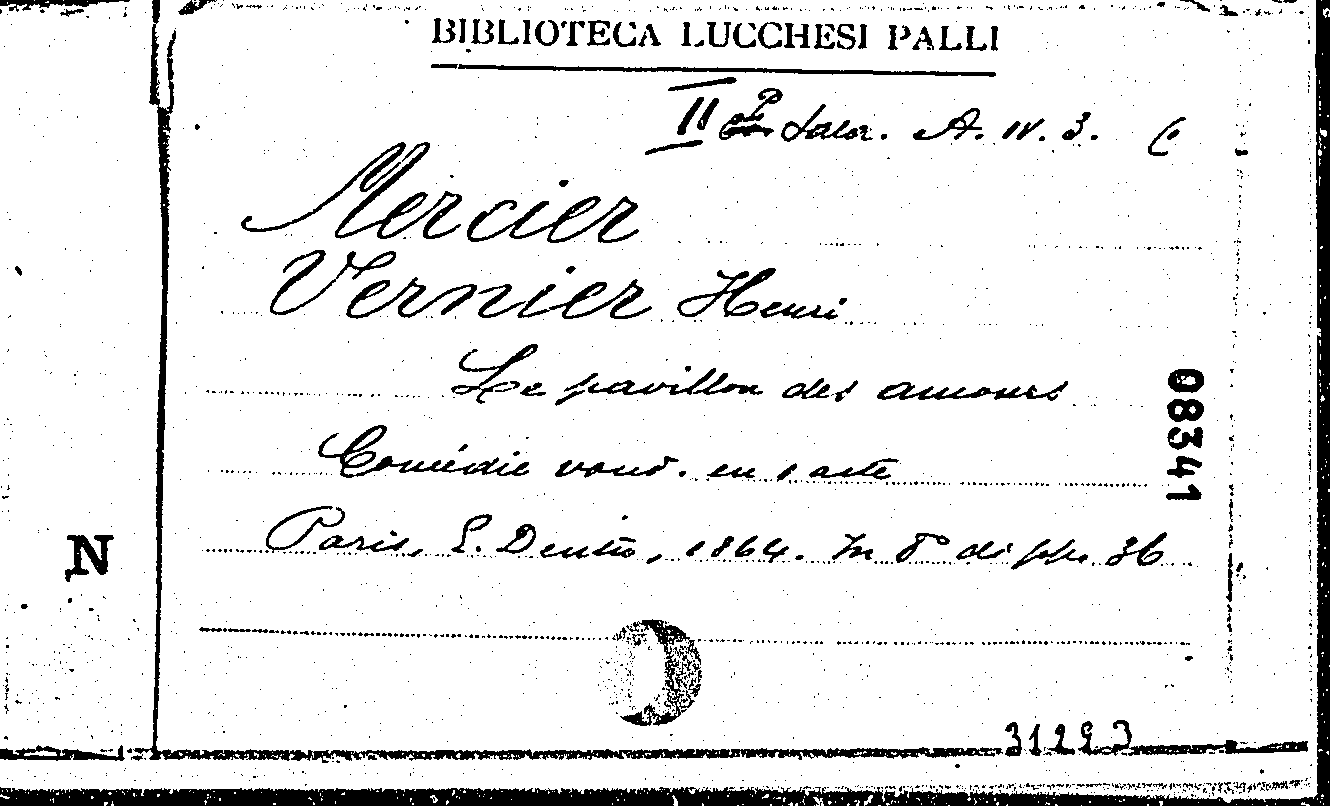 BIBLIOTECA LUCCHESI PALLI
II Sala. A. IV. 3. (
Mercier
Vernier Henri
Le pavillon des amours
Comédie vaud. en 1 acte
Paris, E. Dentu, 1864. In 8º di pp. 36
08341
N
31293